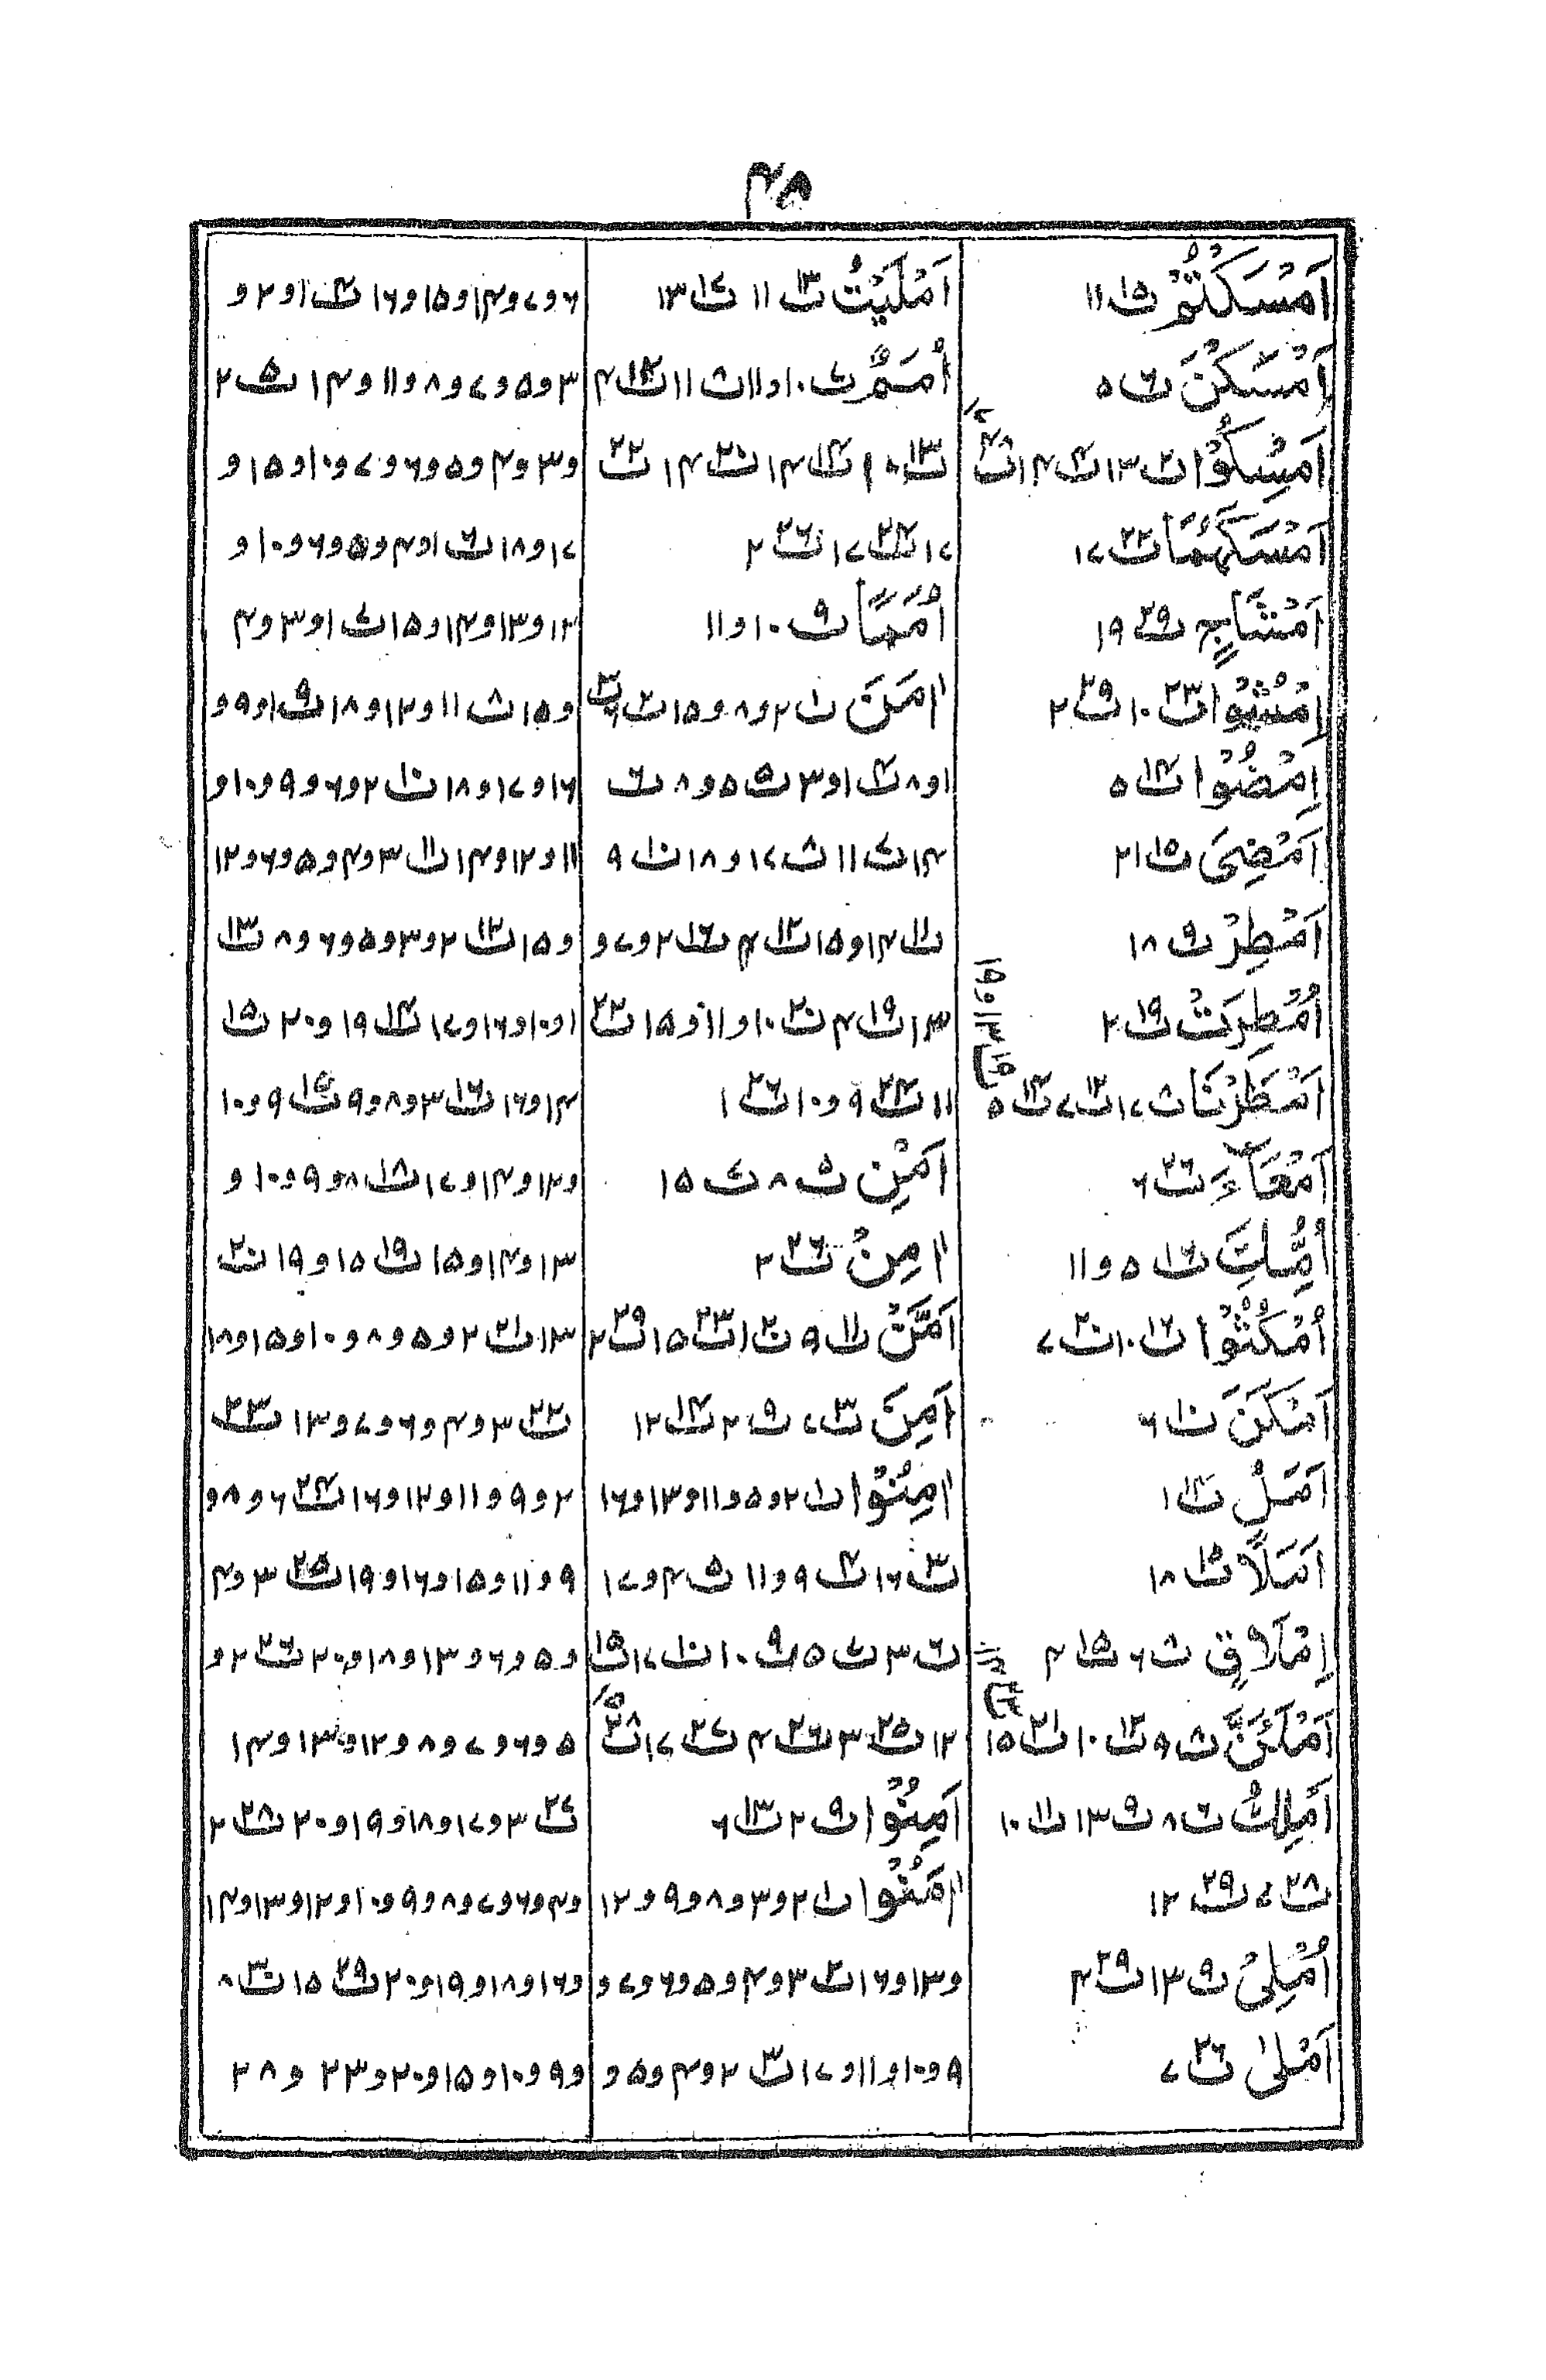 ۴۸
اَمْسَكْتُمْ ت۱۵ ۱۱
اَمْسَكْنَ ت۶ ۵
اَمْسِكُوْا ت۲ ۱۳ ت۴ ۱۴ ت۲۸
اَمْسَكَهُمَا ت۲۲ ۱۷
اَمْشَاجٍ ت۲۹ ۱۹
اِمْشُوْا ت۲۳ ۱۰ ت۲۹ ۲
اِمْضُوْا ت۱۴ ۵
اَمْضِیَ ت۱۵ ۲۱
اَمْطِرْ ت۹ ۱۸
اُمْطِرَتْ ت۱۹ ۲
اَمْطَرْنَا ت۸ ۱۷ ت۱۲ ۷ ت۱۴ ۵
اَمْعَآءَ ت۲۶ ۶
۱۱ و ۵ ت۱۶
اُمْكُثُوْا ت۱۶ ۱۰ ت۲۰ ۷
اَمْكَنَ ت۱۰ ۶
اَمَلُ ت۱۴ ۱
اَمَلًا ت۱۵ ۱۸
اِمْلَاقٍ ت۸ ۶ ت۱۵ ۴
اَمْلَئَنَّ ت۸ ۹ ت۱۲ ۱۰ ت۲۱ ۱۵
اَمْلِكُ ت۶ ۸ ت۹ ۱۳ ت۱۱ ۱۰
ت۲۸ ۷ ت۲۹ ۱۲
اُمْلِیْ ت۹ ۱۳ ت۲۹ ۴
اَمْلٰی ت۲۶ ۷
اَمْلَيْتُ ت۱۳ ۱۱ ت۱۷ ۱۳
اُمَمٌ ت۷ ۱۰ و ۱۱ ت۸ ۱۱ ت۱۲ ۴
ت۱۳ ۱۰ ت۱۴ ۱۴ ت۲۰ ۱۴ ت۲۲
۱۷ ت۲۴ ۱۷ ت۲۶ ۲
اُمَمًا ت۹ ۱۰ و ۱۱
اٰمَنَ ت۱ ۲ و ۸ و ۱۵ ت۳
۱ و ۸ ت۴ ۱ و ۳ ت۵ ۵ و ۸ ت۶
۱۴ ت۷ ۱۱ ت۸ ۱۷ و ۱۸ ت۱۰ ۹
ت۱۱ ۱۴ و ۱۵ ت۱۲ ۴ ت۱۶ ۲ و ۷ و
۱۳ ت۱۹ ۴ ت۲۰ ۱۰ و ۱۱ و ۱۵ ت۲۳
۱۱ ت۲۴ ۹ و ۱۰ ت۲۶ ۱
اٰمِنْ ت۵ ۸ ت۷ ۱۵
اٰمِنْ ت۲۶ ۲
اَمَّنْ ت۱۱ ۹ ت۲۰ ۱ ت۲۳ ۱۵ ت۲۹ ۲
اَمِنَ ت۳ ۷ ت۹ ۲ ت۱۴ ۱۲
اٰمِنُوْا ت۱ ۲ و ۵ و ۱۱ و ۱۳ و ۱۶
ت۳ ۱۶ ت۴ ۹ و ۱۱ ت۵ ۴ و ۱۷
ت۶ ۳ ت۷ ۵ ت۹ ۱۰ ت۱۰ ۱۷ ت۱۵
۱۲ ت۲۵ ۳ ت۲۶ ۴ ت۲۷ ۱۷ ت۲۸
اَمِنُوْا ت۹ ۲ ت۱۳ ۶
اٰمَنُوْا ت۱ ۲ و ۳ و ۸ و ۹ و ۱۲
و ۱۳ و ۱۶ ت۲ ۳ و ۴ و ۵ و ۶ و ۷ و
۹ و ۱۰ و ۱۱ و ۱۷ ت۳ ۲ و ۴ و ۵ و
۶ و ۷ و ۱۴ و ۱۵ و ۱۶ ت۴ ۱ و ۲ و
۳ و ۵ و ۷ و ۸ و ۱۱ و ۱۴ ت۵ ۲
و ۳ و ۴ و ۵ و ۶ و ۷ و ۱۰ و ۱۵ و
۱۷ و ۱۸ ت۶ ۱ و ۴ و ۵ و ۶ و ۱۰ و
۱۲ و ۱۳ و ۱۴ و ۱۵ ت۷ ۱ و ۳ و ۴
و ۱۵ ت۸ ۱۱ و ۱۲ و ۱۸ ت۹ ۱ و ۹ و
۱۶ و ۱۷ و ۱۸ ت۱۰ ۲ و ۶ و ۹ و ۱۰ و
۱۱ و ۱۲ و ۱۴ ت۱۱ ۳ و ۴ و ۵ و ۶ و ۱۲
و ۱۵ ت۱۲ ۲ و ۳ و ۵ و ۶ و ۸ ت۱۳
۱ و ۱۰ و ۱۶ و ۱۷ ت۱۴ ۱۹ و ۲۰ ت۱۵
۱۴ و ۱۶ ت۱۶ ۳ و ۸ و ۹ ت۱۷ ۹ و ۱۰
و ۱۲ و ۱۴ و ۱۷ ت۱۸ ۸ و ۹ و ۱۰ و
۱۳ و ۱۴ و ۱۵ ت۱۹ ۱۵ و ۱۹ ت۲۰
۱۳ ت۲۱ ۲ و ۵ و ۸ و ۱۰ و ۱۵ و ۱۸
ت۲۲ ۳ و ۴ و ۶ و ۷ و ۱۳ ت۲۳
۲ و ۹ و ۱۱ و ۱۲ و ۱۶ ت۲۴ ۶ و ۸ و
۹ و ۱۱ و ۱۵ و ۱۶ و ۱۹ ت۲۵ ۳ و ۴
و ۵ و ۶ و ۱۳ و ۱۸ و ۲۰ ت۲۶ ۲ و
۵ و ۶ و ۷ و ۸ و ۱۲ و ۱۳ و ۱۴
ت۲۷ ۳ و ۱۷ و ۱۸ و ۱۹ و ۲۰ ت۲۸ ۲
و ۴ و ۶ و ۷ و ۸ و ۹ و ۱۰ و ۱۲ و ۱۳ و ۱۴
و ۱۶ و ۱۸ و ۱۹ و ۲۰ ت۲۹ ۱۵ ت۳۰ ۸
و ۹ و ۱۰ و ۱۵ و ۲۰ و ۲۳ و ۲۸